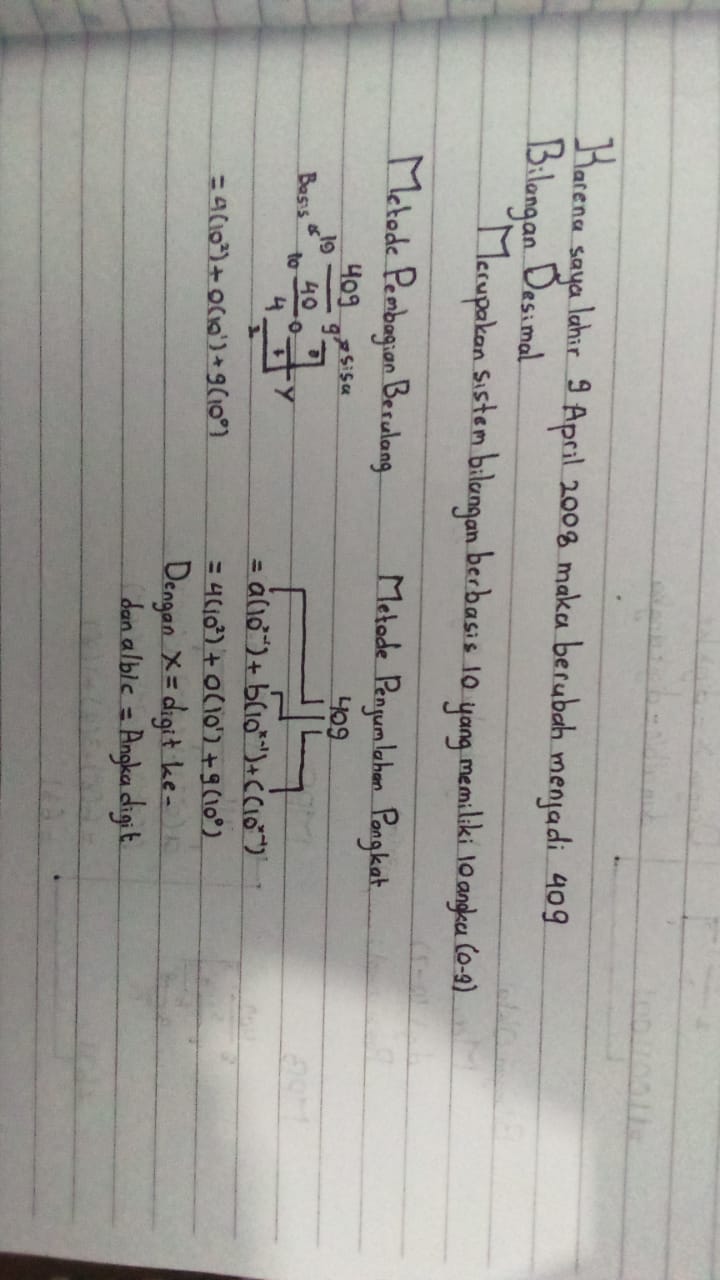 Karena saya lahir 9 April 2008 maka berubah menjadi 409
Bilangan Desimal
Merupakan sistem bilangan berbasis 10 yang memiliki 10 angka (0-9)
Metode Pembagian Berulang
409
10 9 sisa
Basis
40 0
10 0
4 1 y
2
= 4(10²) + 0(10¹) + 9(10⁰)
Metode Penjumlahan Pangkat
409
= a(10ˣ⁻¹) + b(10ˣ⁻¹) + c(10ˣ⁻¹)
= 4(10²) + 0(10¹) + 9(10⁰)
Dengan x = digit ke-
dan a/b/c = Angka digit